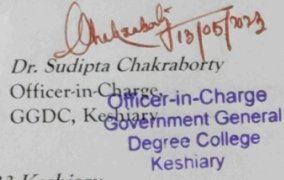 Chakraborty 13/05/2023
Dr. Sudipta Chakraborty
Officer-in-Charge
GGDC, Keshiary
Officer-in-Charge
Government General
Degree College
Keshiary
Keshiary